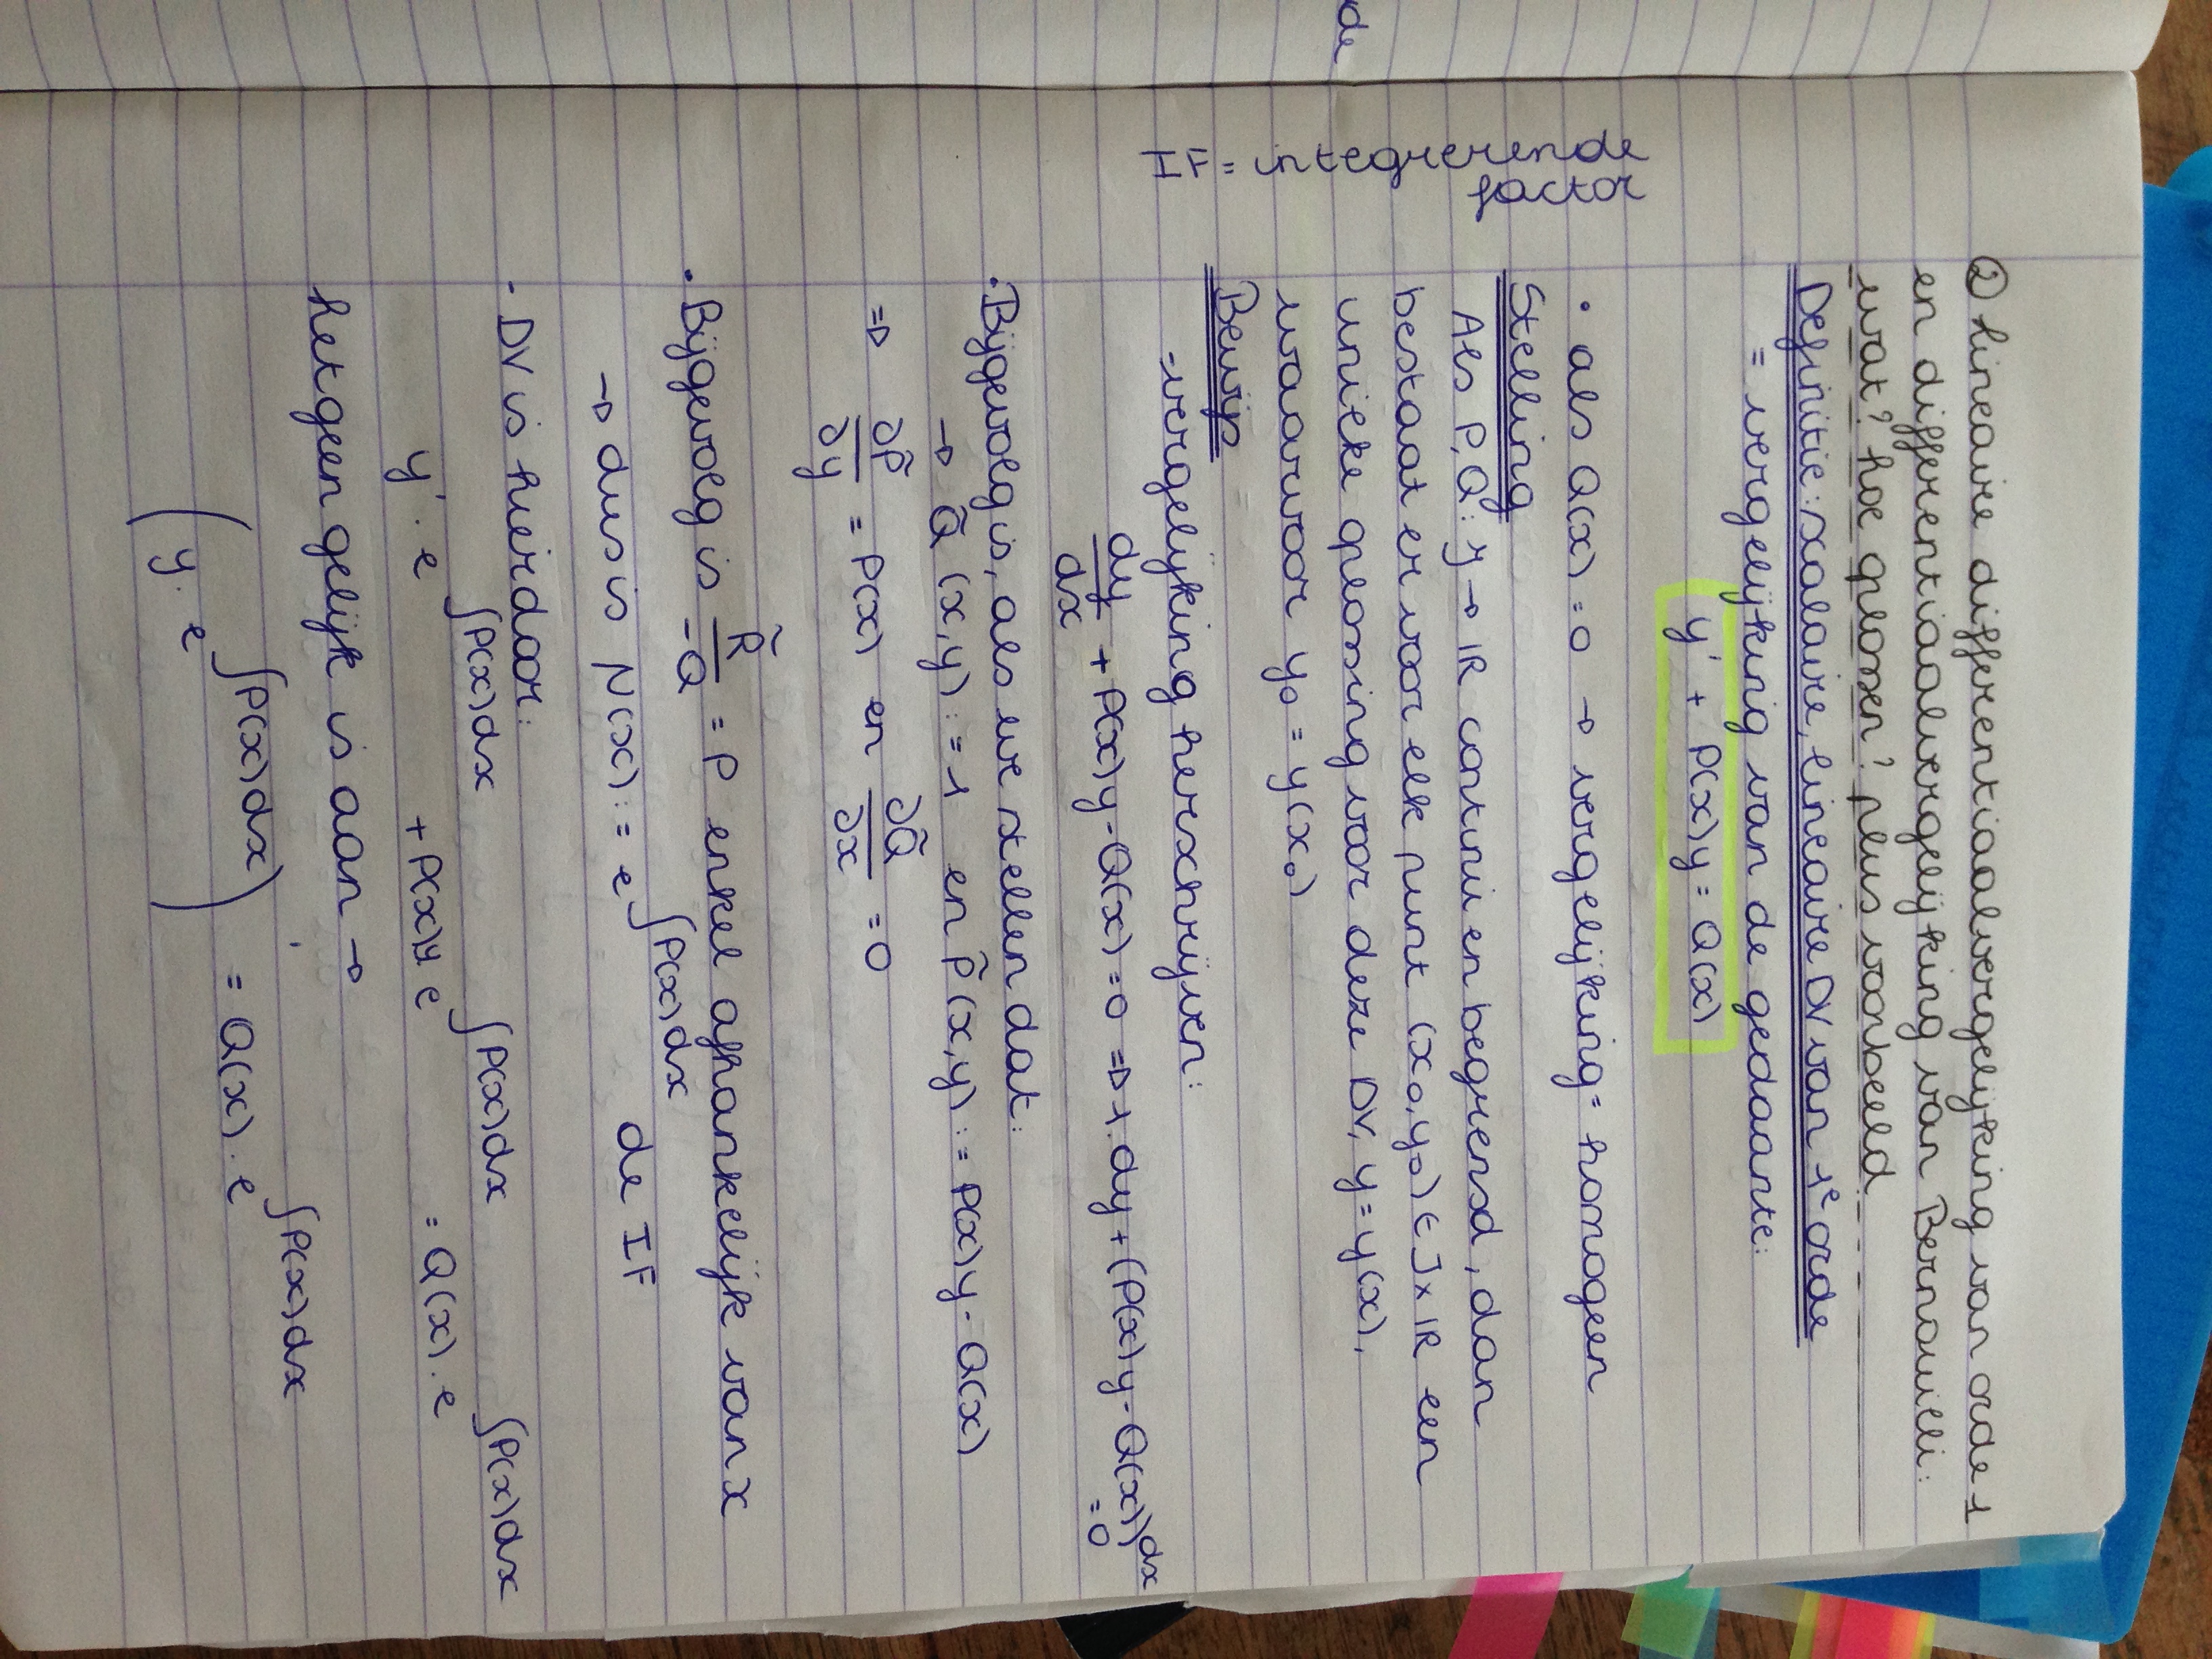 ② Lineaire differentiaalvergelijking van orde 1
en differentiaalvergelijking van Bernouilli:
wat? hoe oplossen? plus voorbeeld
Definitie: scalaire, lineaire DV van 1e orde
= vergelijking van de gedaante:
y' + P(x)y = Q(x)
• als Q(x) = 0 → vergelijking = homogeen
Stelling
Als P, Q : J → IR continu en begrensd, dan
bestaat er voor elk punt (x₀, y₀) ∈ J x IR een
unieke oplossing voor deze DV, y = y(x),
waarvoor y₀ = y(x₀)
Bewijs
- vergelijking herschrijven:
dy/dx + P(x)y - Q(x) = 0 ⇒ 1. dy + (P(x)y - Q(x)) dx = 0
• Bijgevolg is, als we stellen dat:
→ Q̃ (x,y) : = 1 en P̃ (x,y) : = P(x)y - Q(x)
⇒ ∂P̃/∂y = P(x) en ∂Q̃/∂x = 0
• Bijgevolg is R̃/-Q = P enkel afhankelijk van x
→ dus is N(x) : = e^∫P(x)dx de IF
- DV is hierdoor:
y' . e^∫P(x)dx + P(x)y e^∫P(x)dx = Q(x) . e^∫P(x)dx
hetgeen gelijk is aan →
(y . e^∫P(x)dx)' = Q(x) . e^∫P(x)dx
IF = integrerende
factor
de